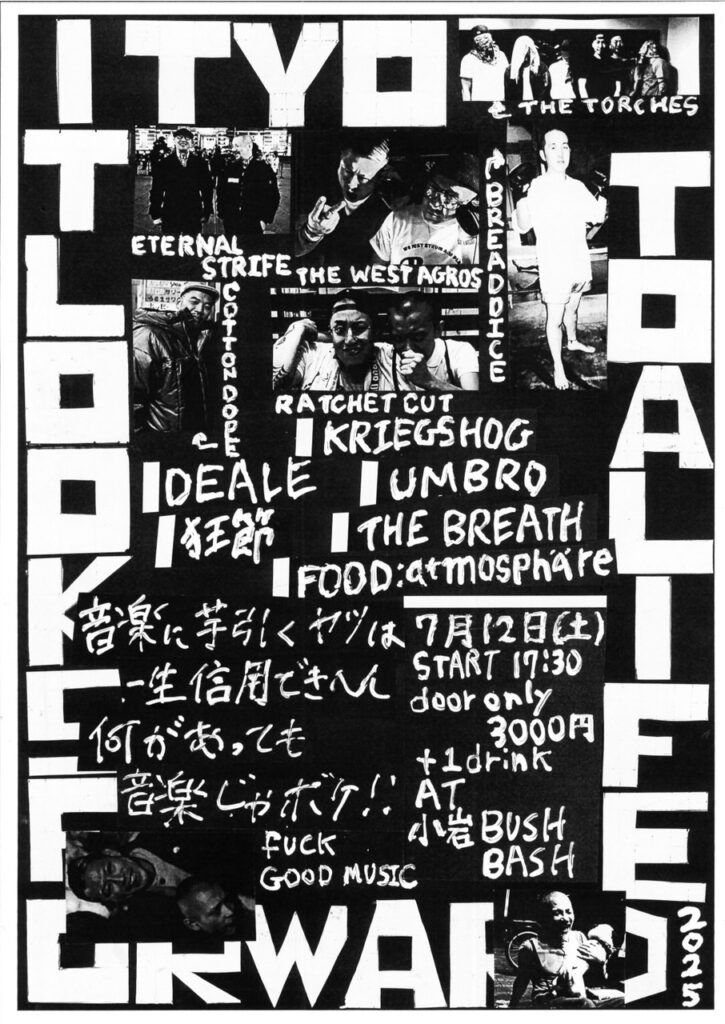 ITYO
THE TORCHES
TLOOKSF
TOALIFE
ETERNAL
STRIFE
THE WEST AGROS
BREADDICE
COTTONDOPE
RATCHET CUT
KRIEGSHOG
DEALE
UMBRO
狂節
THE BREATH
FOOD:atmosphäre
音楽に芋引くヤツは
一生信用できへん
何があっても
音楽じゃボケ!!
FUCK
GOOD MUSIC
7月12日(土)
START 17:30
door only
3000円
+1drink
AT
小岩 BUSH
BASH
ORWARD
2025